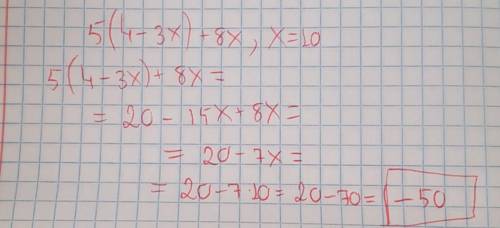 5(4-3x)+8x, x=10
5(4-3x)+8x=
= 20-15x+8x=
= 20-7x=
= 20-7·10=20-70= -50